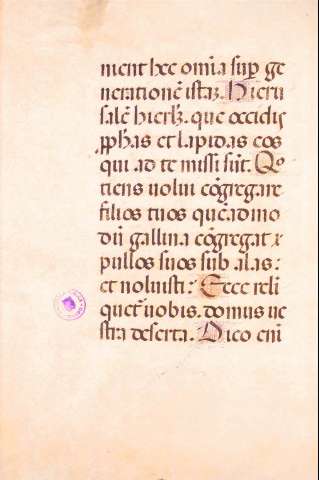 nient hec om̅ia sup̲ ge
neratione̅ ista̅ꝫ. Hieru
sale̅ hierlꝫ. que occidis
ꝓph̅as et lapidas eos
qui ad te missi su̅t. Quo
tiens volui co̅gregare
filios tuos que̅admo
du̅ gallina co̅gregat
pullos suos sub alas:
et noluisti: Ecce reli
quet᷑ vobis. domus ve
stra deserta. Dico eni̅